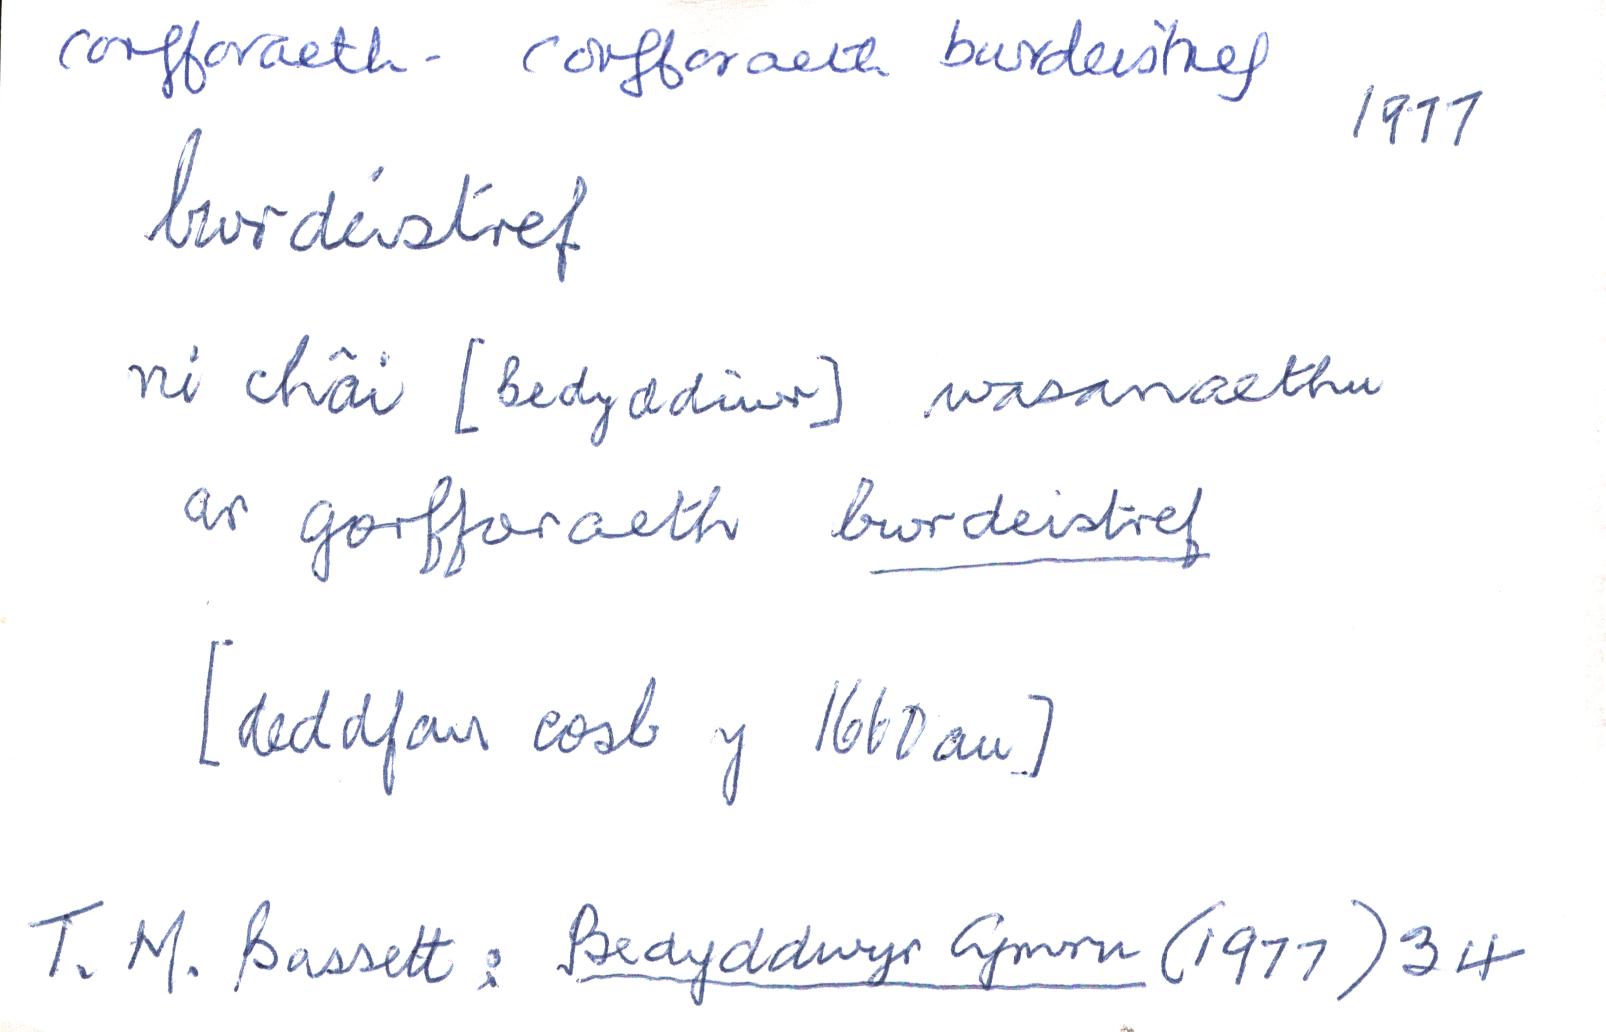 corfforaeth - corfforaeth bwrdeistref
1977
bwrdeistref
ni châi [Bedyddiwr] wasanaethu
ar gorfforaeth bwrdeistref
[deddfau cosb y 1660au]
T. M. Bassett : Bedyddwyr Cymru (1977) 34